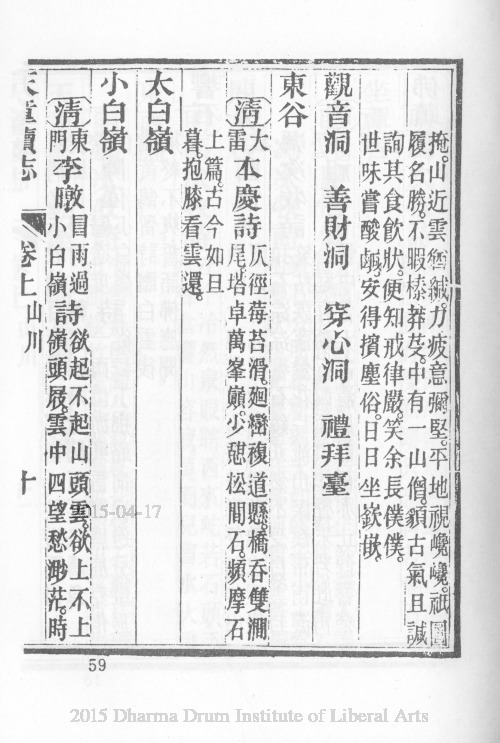 掩。山近雲緘。力疲意彌堅。平地視巉巉。祇園
履名勝。不暇榛莽芟。中有一山僧。古氣且諴
詢其食飲狀。便知戒律嚴。笑余長僕僕。
世味嘗酸。安得擯塵俗。日日坐嶔嵌。
觀音洞 善財洞 穿心洞 禮拜臺
東谷
清 大雷 本慶詩 仄徑莓苔滑。廻巒複道懸。橋吞雙澗
尾。塔卓萬峯巔。少憩松間石。頻摩石
上篇。古今如且
暮。抱膝看雲還。
太白嶺
小白嶺
清 東門 李暾 冒雨過小白嶺 詩 欲起不起山頭雲。欲上不上
嶺頭屐。雲中四望愁渺茫。時
天童續志 卷上 山川 十
2015-04-17
59
2015 Dharma Drum Institute of Liberal Arts